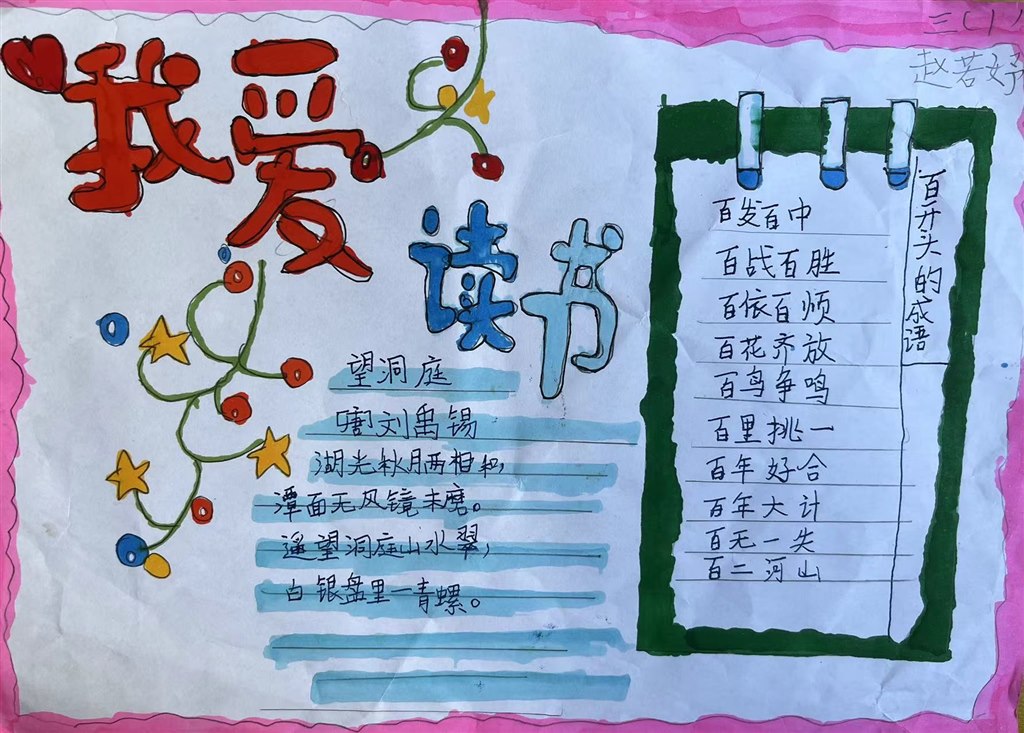 三(1)
赵若妤
我爱
读书
望洞庭
唐刘禹锡
湖光秋月两相和,
潭面无风镜未磨。
遥望洞庭山水翠,
白银盘里一青螺。
百开头的成语
百发百中
百战百胜
百依百顺
百花齐放
百鸟争鸣
百里挑一
百年好合
百年大计
百无一失
百二河山